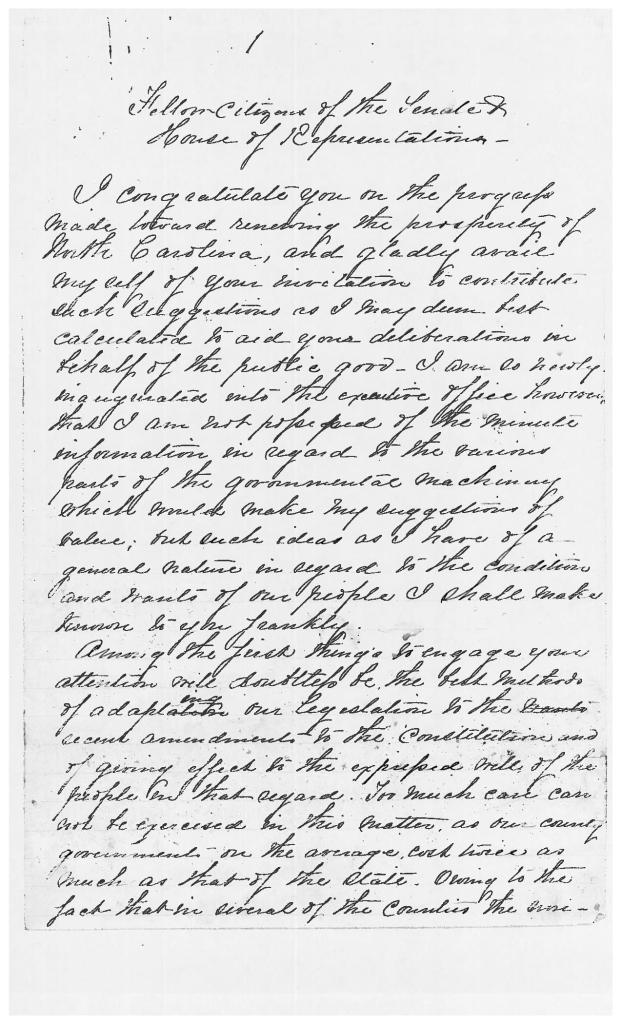 1
Fellow-Citizens of the Senate &
House of Representatives-
I congratulate you on the progress
made toward renewing the prosperity of
North Carolina, and gladly avail
myself of your invitation to contribute
such suggestions as I may deem best
calculated to aid your deliberations in
behalf of the public good - I am so newly
inaugurated into the executive office however,
that I am not possessed of the minute
information in regard to the various
parts of the governmental machinery
which would make my suggestions of
value; but such ideas as I have of a
general nature in regard to the condition
and wants of our people I shall make
known to you frankly.
Among the first things to engage your
attention will doubtless be, the best methods
of adapting our legislation to the
recent amendments to the Constitution and
of giving effect to the expressed will of the
people in that regard. Too much care can
not be exercised in this matter, as our county
governments on the average, cost twice as
much as that of the state. Owing to the
fact that in several of the Counties the